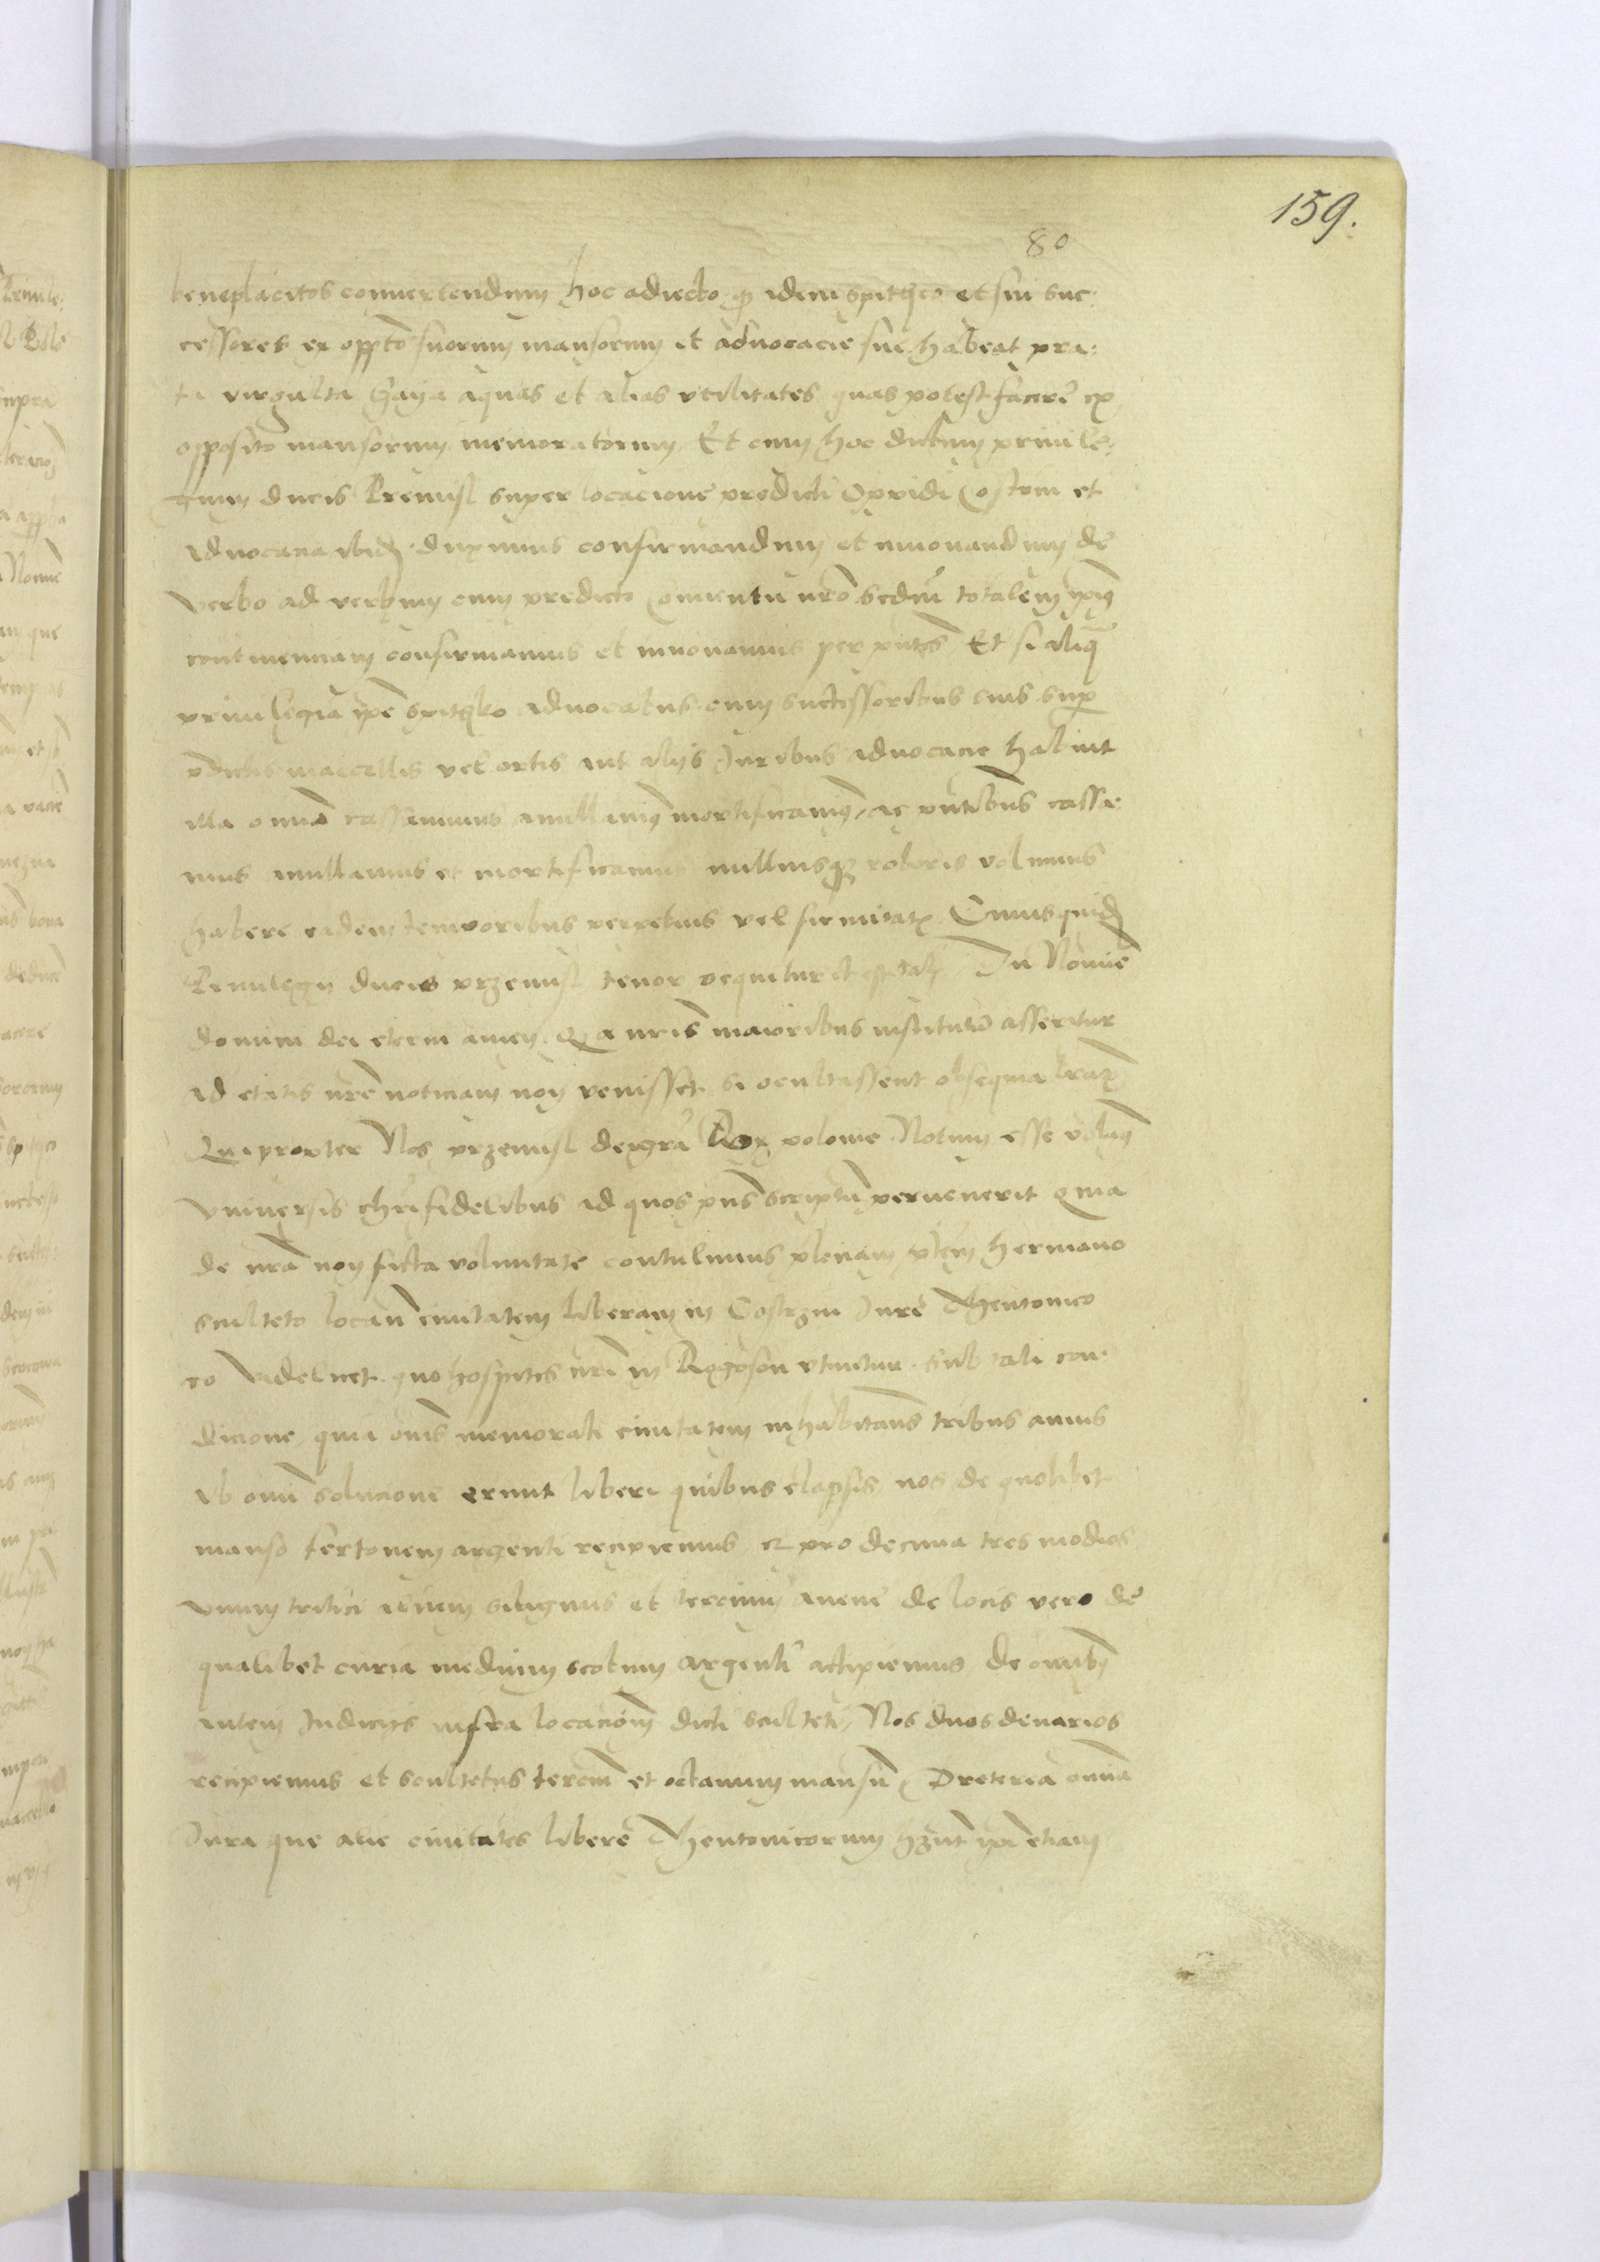 159.
80
beneplacitos conuertendum hoc adiecto q idem spitheo et sui suc-
cessores ex oppto suorum mansorum et aduocacie sue habeat pra-
ta virgulta Gaya aquas et alias vtilitates quas potest facere ex
opposito mansorum memoratorum Et cum hoc dictum priuile-
gium ducis Premisl super locacione predicti Opidi Costein et
aduocacia ibid duximus confirmandum et innouandum de
verbo ad verbum cum predicto conuentu nro sedm totalem ipius
continenciam confirmamus et innouamus per pntes Et si aliq
priuilegia ipe spithko aduocatus cum successoribus suis sup
pdictis maccellis vel ortis aut alijs Juribus aduocacie habuit
illa omnia cassamus anullamus mortificamus, ac pntibus cassa-
mus anullamus et mortificamus nulliusq roboris volumus
habere eadem temporibus perpetuis vel firmitatis Cuiusquid
Priuilegij ducis przemisl tenor sequitur et est talis In Nomine
domini dei eterni amen Quia nris maioribus institutum asseritur
ad etatis nre noticiam non venisset si ocultassent obsequia lrar
Quapropter Nos przemisl dei gra Rex polonie Notum esse volum
vniuersis christifidelibus ad quos pns scriptum peruenerit quia
de nra non ficta voluntate contulimus plenam ptem hermano
sculteto locandi ciuitatem liberam in Costrzin Jure Theutonico
eo videlicet quo hospites nri in Rogoson vtuntur sub tali con-
dicione quia omnes memorati ciuitatem inhabitans tribus annis
ab omni solucione erunt liberi quibus elapsis nos de quolibet
manso fertonem argenti recipiemus et pro decima tres modios
vnum tritici alium siliginis et tercium auene de locis vero de
qualibet curia medium scotum argenti accipiemus de omnibus
autem Judicijs infra locacionem dicti sculteti, Nos duos denarios
recipiemus et scultetus tercium et octauum mansum Preterea omnia
Jura que alie ciuitates libere Theutonicorum hzunt ipi etiam